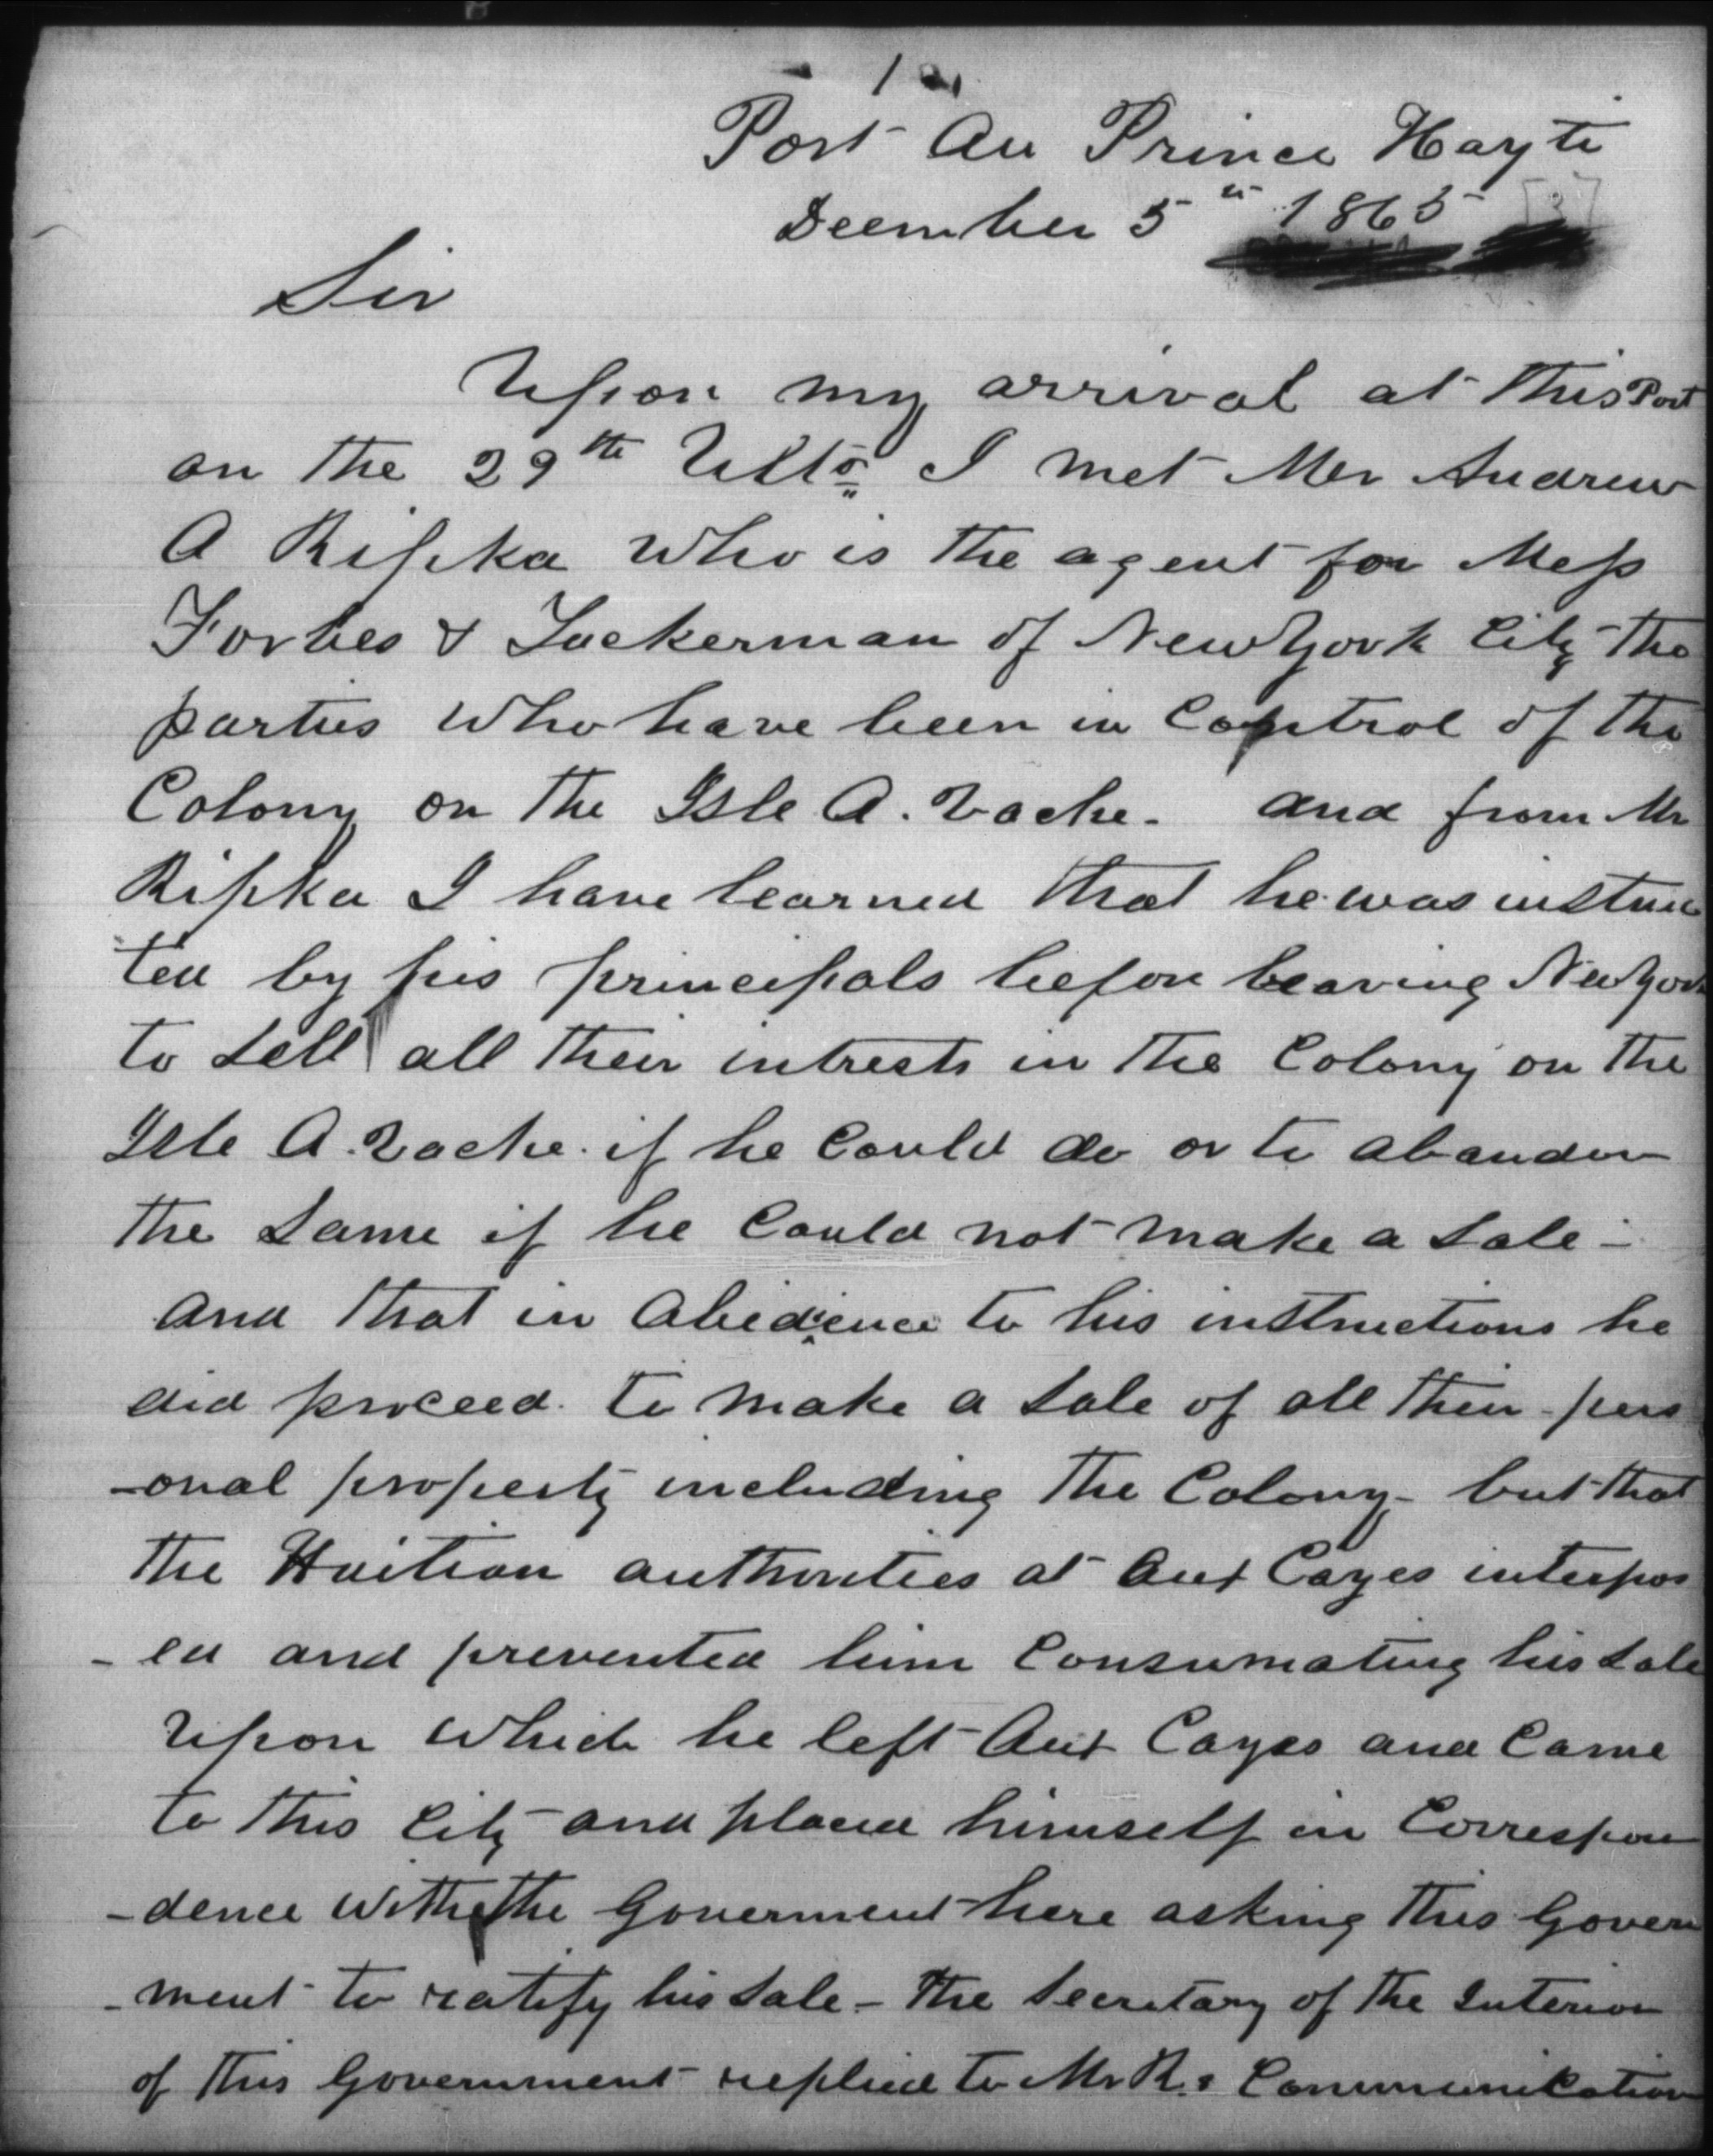 Port Au Prince Hayti
December 5th 1865
Sir
Upon my arrival at this Port
on the 29th Ulto I met Mr Andrew
A Ripka who is the agent for Mess
Forbes & Tuckerman of New York City the
parties who have been in control of the
Colony on the Isle A. Vache. and from Mr
Ripka I have learned that he was instruc
ted by his principals before leaving New York
to sell all their intrests in the Colony on the
Isle A. Vache. if he could do or to abandon
the same if he could not make a sale -
and that in abedience to his instructions he
did proceed to make a sale of all their pers
-onal property including the Colony - but that
the Haitian authorities at Aux Cayes interpos
- ed and prevented him consumating his sale
upon which he left Aux Cayes and came
to this City and placed himself in correspon
-dence with the Goverment here asking this Govern
-ment to ratify his sale - The Secretary of the Interior
of this Government replied to Mr R.s Communication